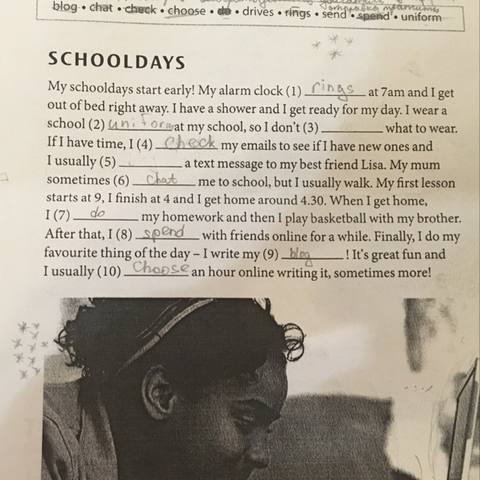 blog • chat • check • choose • do • drives • rings • send • spend • uniform
SCHOOLDAYS
My schooldays start early! My alarm clock (1) rings at 7am and I get
out of bed right away. I have a shower and I get ready for my day. I wear a
school (2) uniform at my school, so I don't (3) ________ what to wear.
If I have time, I (4) check my emails to see if I have new ones and
I usually (5) ________ a text message to my best friend Lisa. My mum
sometimes (6) chat me to school, but I usually walk. My first lesson
starts at 9, I finish at 4 and I get home around 4.30. When I get home,
I (7) do my homework and then I play basketball with my brother.
After that, I (8) spend with friends online for a while. Finally, I do my
favourite thing of the day – I write my (9) blog ! It's great fun and
I usually (10) Choose an hour online writing it, sometimes more!